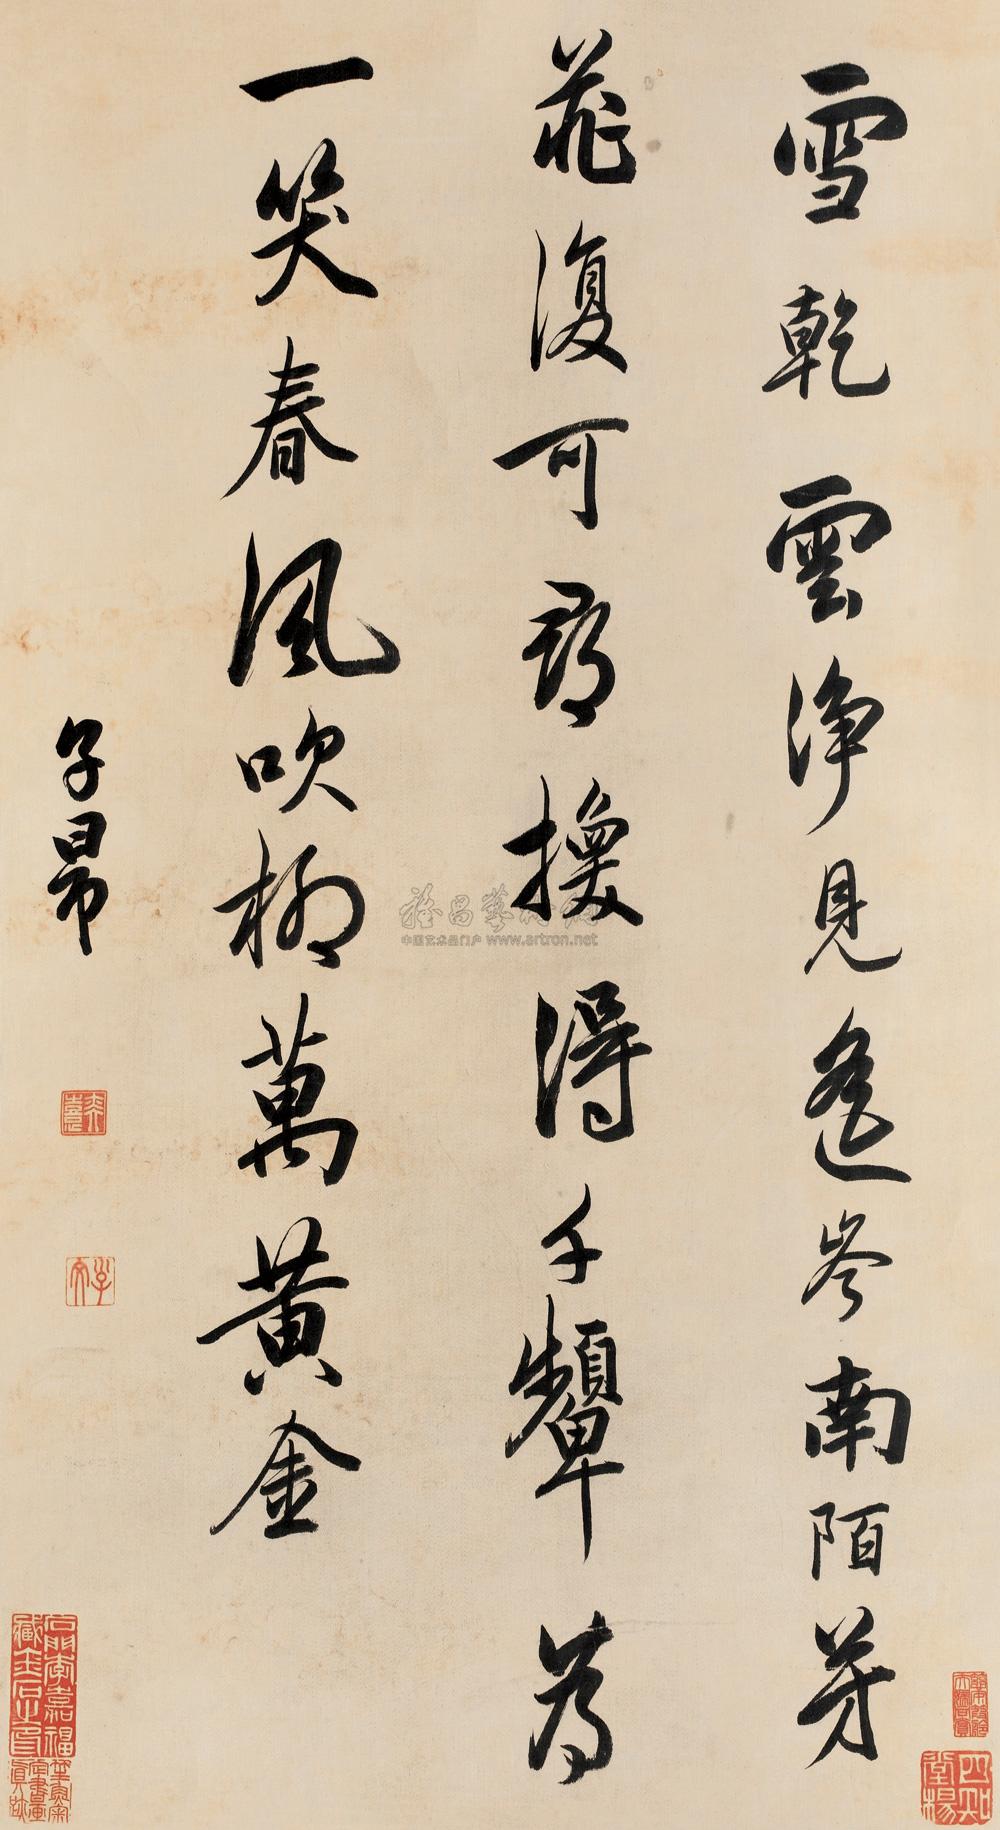 雪乾雲淨見遙岑南陌芳
菲復可尋換得千顰為
一笑春風吹柳萬黃金
子昂
雅昌藝術網
中国艺术品门户 www.artron.net